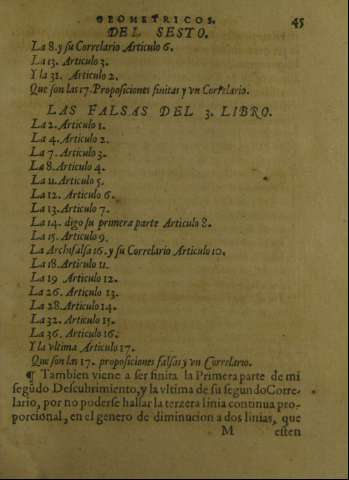 GEOMETRICOS. 45
DEL SESTO.
La 8. y su Correlario Articulo 6.
La 13. Articulo 3.
Y la 31. Articulo 2.
Que son las 17. Proposiciones finitas y vn Correlario.
LAS FALSAS DEL 3. LIBRO.
La 2. Articulo 1.
La 4. Articulo 2.
La 7. Articulo 3.
La 8. Articulo 4.
La 11. Articulo 5.
La 12. Articulo 6.
La 13. Articulo 7.
La 14. digo su primera parte Articulo 8.
La 15. Articulo 9.
La Archifalsa 16. y su Correlario Articulo 10.
La 18. Articulo 11.
La 19 Articulo 12.
La 26. Articulo 13.
La 28. Articulo 14.
La 32. Articulo 15.
La 36. Articulo 16.
Y la vltima Articulo 17.
Que son las 17. proposiciones falsas y vn Correlario.
¶ Tambien viene a ser finita la Primera parte de mi
segũdo Descubrimiento, y la vltima de su segundo Corre-
lario, por no poderse hallar la terzera linia continua pro-
porcional, en el genero de diminucion a dos linias, que
M esten